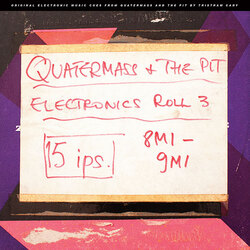 ORIGINAL ELECTRONIC MUSIC CUES FROM QUATERMASS AND THE PIT BY TRISTRAM CARY
QUATERMASS & THE PIT
ELECTRONICS ROLL 3
15 ips.
8M1 –
9M1